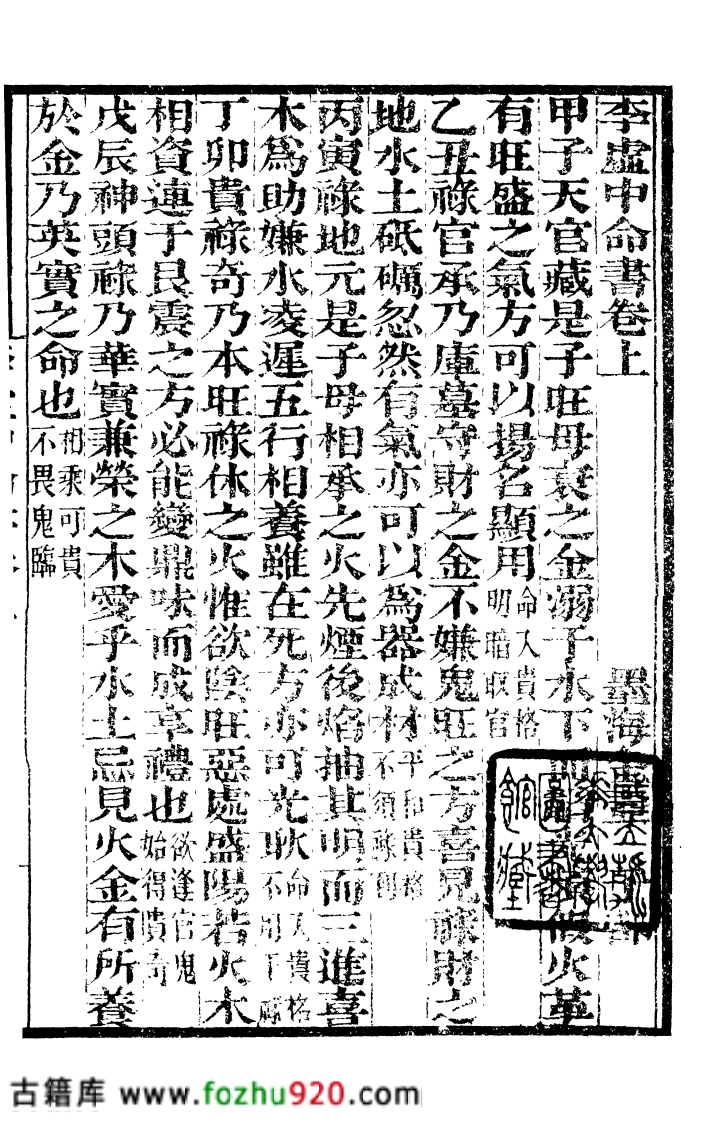 李虛中命書卷上 墨海金壺 子部
甲子天官藏是子旺母衰之金溺于水下而 火革
有旺盛之氣方可以揚名顯用命入貴格明暗取官
乙丑祿官承乃庫墓守財之金不嫌鬼旺之方喜見祿財之
地水土砥礪忽然有氣亦可以為器成材平和貴格不須祿到
丙寅祿地元是子母相承之火先煙後焰抽其明而三進喜
木爲助嫌水凌遲五行相養雖在死方亦可光耿命入貴格不用下祿
丁卯貴祿奇乃本旺祿休之火惟欲陰旺惡處盛陽若火木
相資連于艮震之方必能變鼎味而成享禮也欲逢官鬼始得貴奇
戊辰神頭祿乃華實兼榮之木愛乎水土忌見火金有所養
於金乃英實之命也相乘可貴不畏鬼臨
古籍库 www.fozhu920.com